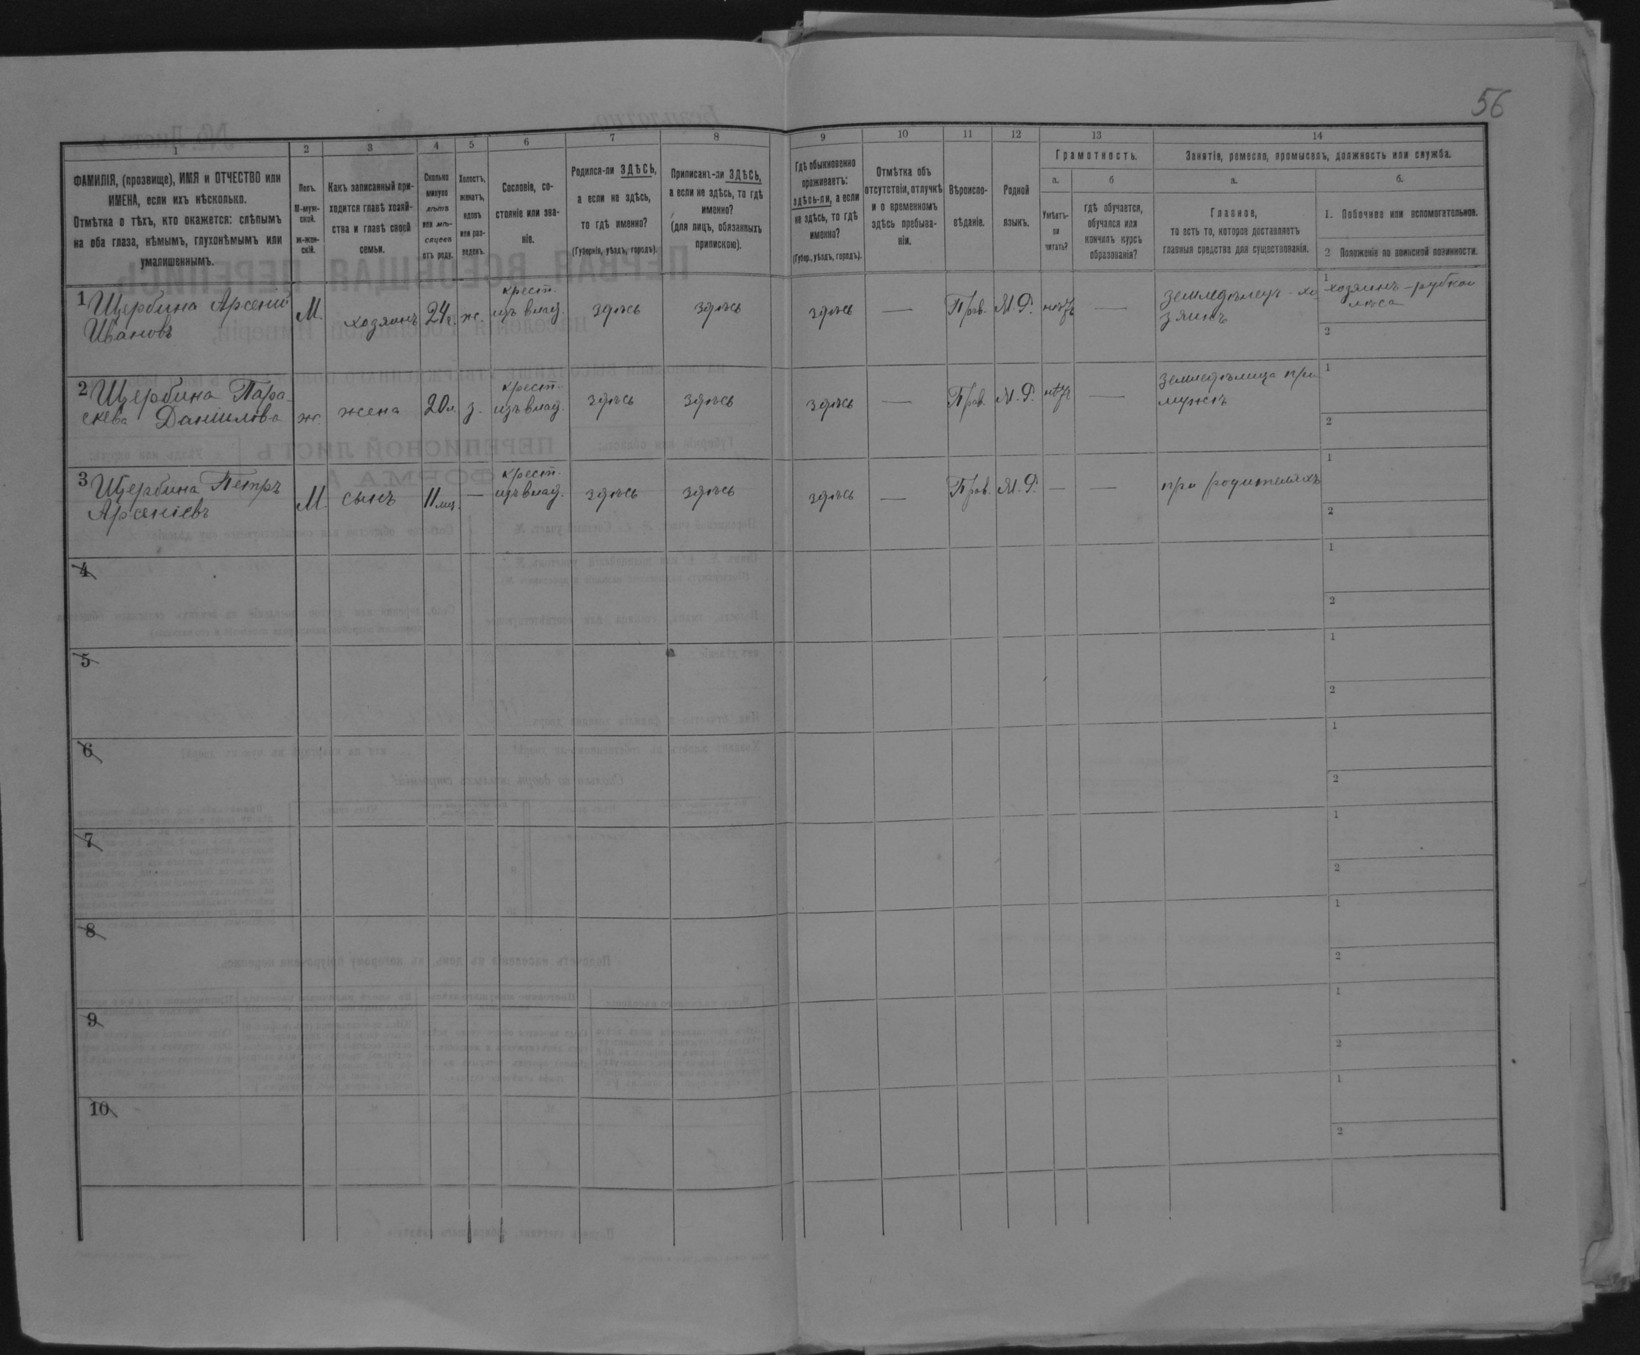 56
1 2 3 4 5 6 7 8 9 10 11 12 13 14
ФАМИЛІЯ, (прозвище), ИМЯ и ОТЧЕСТВО или
ИМЕНА, если ихъ нѣсколько.
Отмѣтка о тѣхъ, кто окажется: слѣпымъ
на оба глаза, нѣмымъ, глухонѣмымъ или
умалишеннымъ.
Полъ.
М-муж-
ской.
ж-жен-
скій.
Какъ записанный при-
ходится главѣ хозяй-
ства и главѣ своей
семьи.
Сколько
минуло
лѣтъ
или мѣ-
сяцевъ
отъ роду.
Холостъ,
женатъ,
вдовъ
или раз-
веденъ.
Сословіе, со-
стояніе или зва-
ніе.
Родился-ли ЗДѢСЬ,
а если не здѣсь,
то гдѣ именно?
(Губернія, уѣздъ, городъ).
Приписанъ-ли ЗДѢСЬ,
а если не здѣсь, то гдѣ
именно?
(для лицъ, обязанныхъ
припискою).
Гдѣ обыкновенно
проживаетъ:
здѣсь-ли, а если
не здѣсь, то гдѣ
именно?
(Губер., уѣздъ, городъ).
Отмѣтка объ
отсутствіи, отлучкѣ
и о временномъ
здѣсь пребыва-
ніи.
Вѣроиспо-
вѣданіе.
Родной
языкъ.
Грамотность.
а.
Умѣетъ-
ли
читать?
б
гдѣ обучается,
обучался или
кончилъ курсъ
образованія?
Занятіе, ремесло, промыселъ, должность или служба.
а.
Главное,
то есть то, которое доставляетъ
главныя средства для существованія.
б.
1. Побочное или вспомогательное.
2 Положеніе по воинской повинности.
1 Щербина Арсеній
Ивановъ
М. хозяинъ 24 г. ж. крест.
изъ влад. здѣсь здѣсь здѣсь — Прав. М.Р. нѣтъ — земледѣлецъ - хо
зяинъ
1 хозяинъ - рубка
лѣса
2
2 Щербина Пара
скева Даниилова
ж. жена 20 л. з. крест.
изъ влад. здѣсь здѣсь здѣсь — Прав. М.Р. нѣтъ — земледѣлица при
мужѣ
1
2
3 Щербина Петръ
Арсеніевъ
М. сынъ 11 мц. — крест.
изъ влад. здѣсь здѣсь здѣсь — Прав. М.Р. — — при родителяхъ
1
2
4
1
2
5
1
2
6
1
2
7
1
2
8
1
2
9
1
2
10
1
2